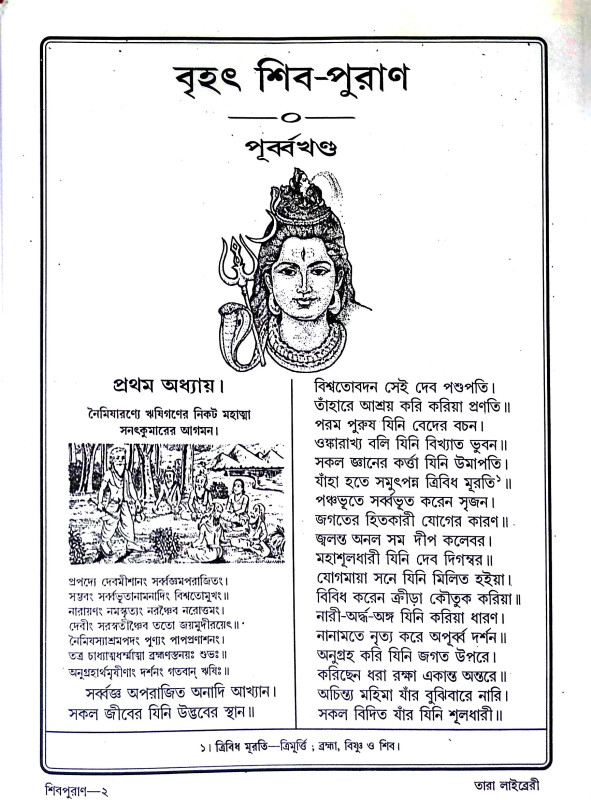 বৃহৎ শিব-পুরাণ
পূর্ব্বখণ্ড
প্রথম অধ্যায়।
নৈমিষারণ্যে ঋষিগণের নিকট মহাত্মা
সনৎকুমারের আগমন।
প্রপদ্যে দেবমীশানং সর্ব্বজ্ঞমপরাজিতং।
সম্ভবং সর্ব্বভূতানামনাদিং বিশ্বতোমুখং॥
নারায়ণং নমস্কৃত্যং নরঞ্চৈব নরোত্তমং।
দেবীং সরস্বতীঞ্চৈব ততো জয়মুদীরয়েৎ॥
নৈমিষস্যাশ্রমপদং পুণ্যং পাপপ্রণাশনং।
তত্র চাধ্যাত্মধর্ম্মাত্মা ব্রহ্মণস্তনয়ঃ শুভঃ॥
অনুগ্রহার্থমৃষীণাং দর্শনং গতবান্ ঋষিঃ॥
সর্ব্বজ্ঞ অপরাজিত অনাদি আখ্যান।
সকল জীবের যিনি উদ্ভবের স্থান॥
বিশ্বতোবদন সেই দেব পশুপতি।
তাঁহারে আশ্রয় করি করিয়া প্রণতি॥
পরম পুরুষ যিনি বেদের বচন।
ওঙ্কারাখ্য বলি যিনি বিখ্যাত ভুবন॥
সকল জ্ঞানের কর্ত্তা যিনি উমাপতি।
যাঁহা হতে সমুৎপন্ন ত্রিবিধ মূরতি১॥
পঞ্চভূতে সর্ব্বভূত করেন সৃজন।
জগতের হিতকারী যোগের কারণ॥
জ্বলন্ত অনল সম দীপ কলেবর।
মহাশূলধারী যিনি দেব দিগম্বর॥
যোগমায়া সনে যিনি মিলিত হইয়া।
বিবিধ করেন ক্রীড়া কৌতুক করিয়া॥
নারী-অর্দ্ধ-অঙ্গ যিনি করিয়া ধারণ।
নানামতে নৃত্য করে অপূর্ব্ব দর্শন॥
অনুগ্রহ করি যিনি জগত উপরে।
করিছেন ধরা রক্ষা একান্ত অন্তরে॥
অচিন্ত্য মহিমা যাঁর বুঝিবারে নারি।
সকল বিদিত যাঁর যিনি শূলধারী॥
১। ত্রিবিধ মূরতি—ত্রিমূর্ত্তি ; ব্রহ্মা, বিষ্ণু ও শিব।
শিবপুরাণ—২
তারা লাইব্রেরী